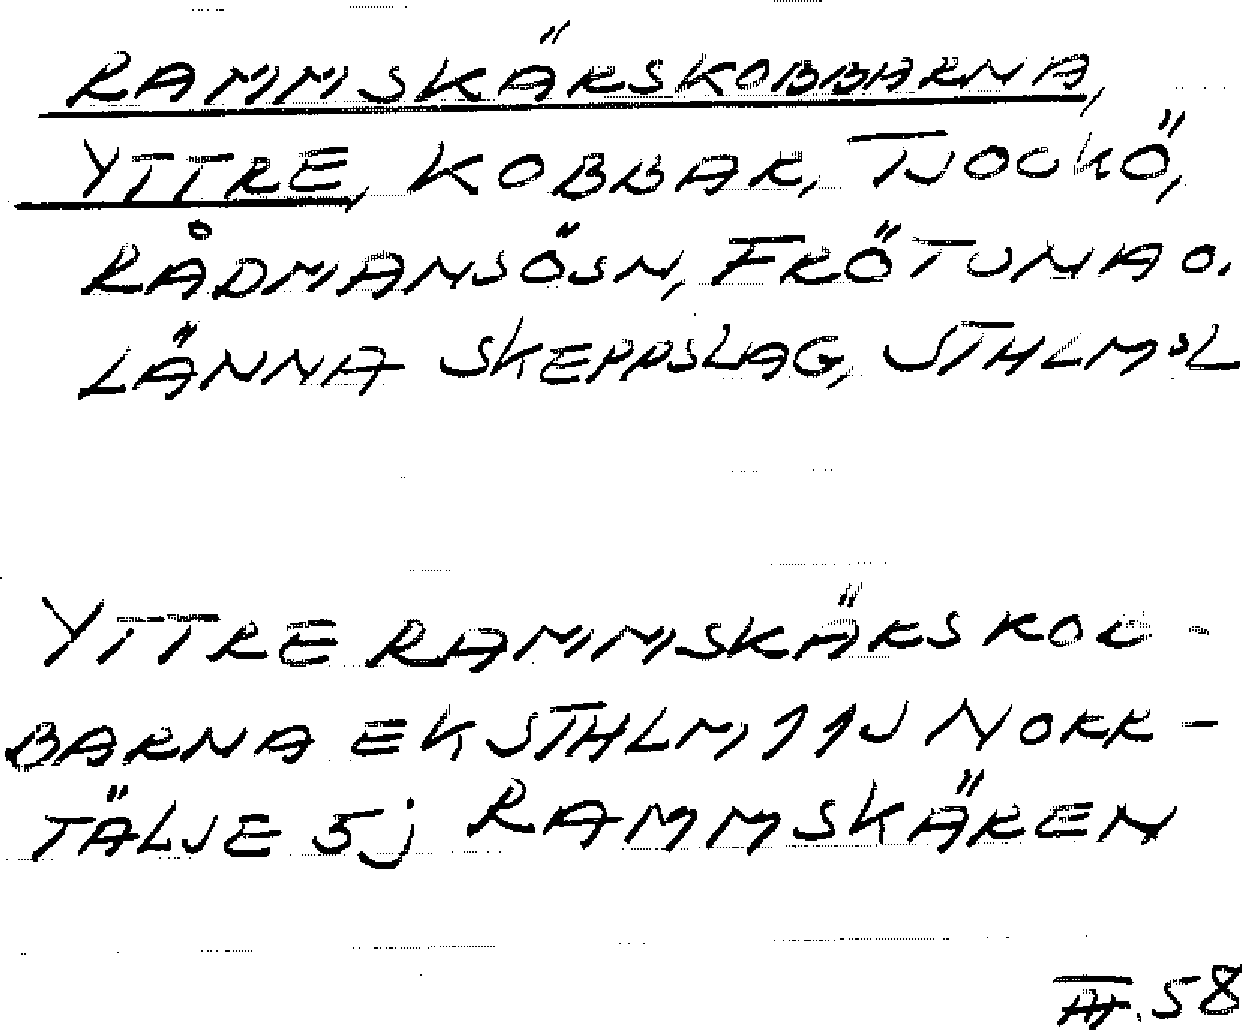 RAMMSKÄRSKOBBARNA,
YTTRE, KOBBAR, TJOCKÖ,
RÅDMANSÖSN, FRÖTUNA O.
LÄNNA SKEPPSLAG, STHLMSL
YTTRE RAMMSKÄRSKOB-
BARNA EK STHLM 11J NORR-
TÄLJE 5j RAMMSKÄREN
58